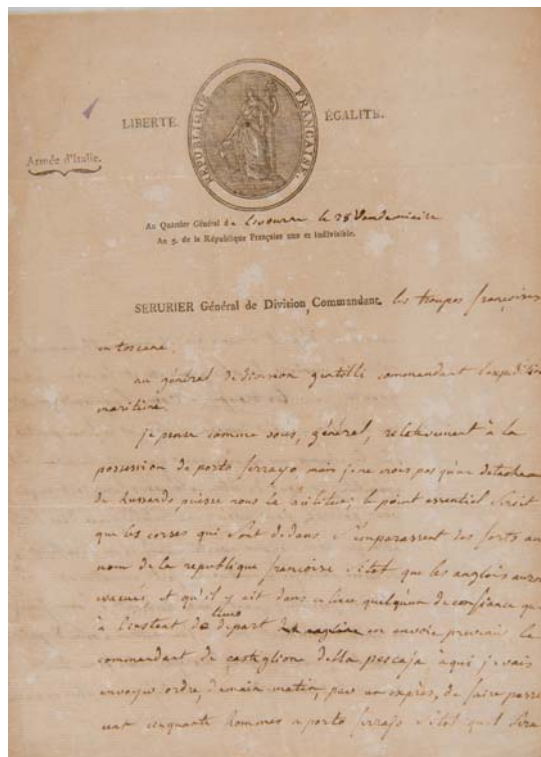 LIBERTÉ. RÉPUBLIQUE FRANÇAISE. ÉGALITÉ.
Armée d'Italie.
Au Quartier Général de Livourne le 28 Vendemiaire
An 5. de la République Française une et indivisible.
SERURIER Général de Division, Commandant. les troupes françoises
en toscane.
au général de division gentilli commandant l'expédition
maritime.
je pense comme vous, général, relativement à la
possession de porto ferrajo mais je ne crois pas qu'un detachem
de hussards puisse nous la faciliter; le point essentiel seroit
que les corses qui sont dedans s'emparassent des forts au
nom de la republique françoise sitot que les anglois auron
evacués, et qu'il y ait dans ce lieu quelqu'un de confiance qui
à l'instant de leur départ en envoie prevenir le
commandant de castiglione della pescaja à qui je vais
envoyer ordre, demain matin, par un exprès, de faire passer
cent cinquante hommes a porto ferrajo sitot qu'il sera